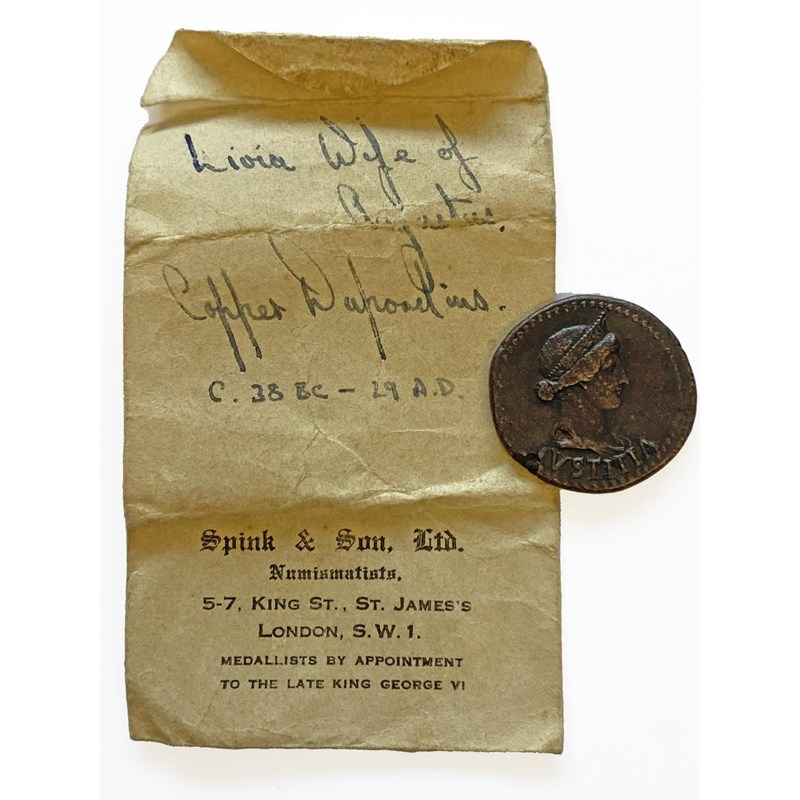 Livia Wife of
Augustus.
Copper Dupondius.
C. 38 BC – 29 A.D.
Spink & Son, Ltd.
Numismatists,
5-7, KING ST., ST. JAMES'S
LONDON, S.W.1.
MEDALLISTS BY APPOINTMENT
TO THE LATE KING GEORGE VI
IVSTITIA